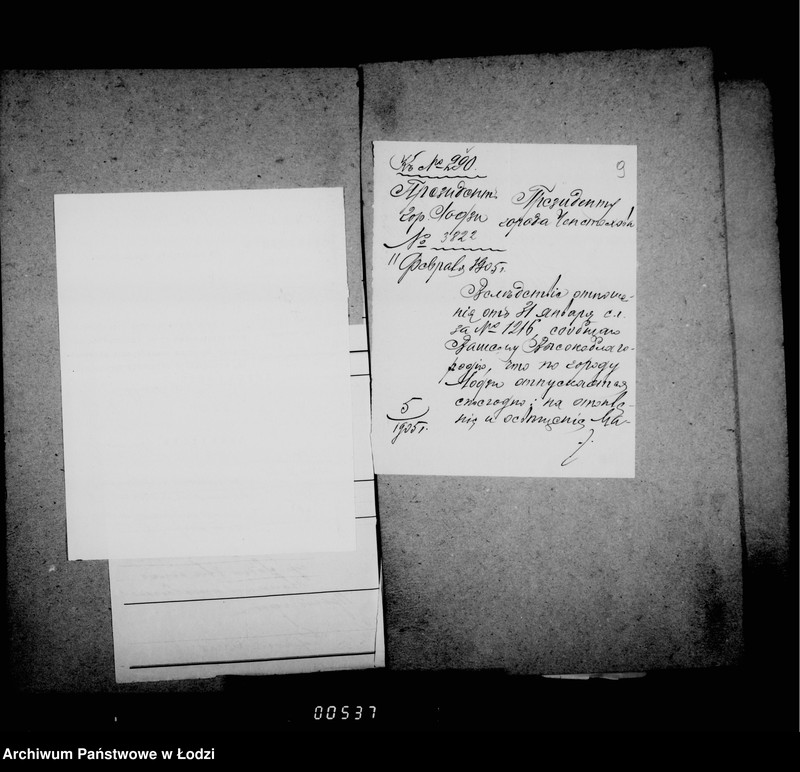 Къ № 290.
9
Президентъ
гор. Лодзи
№ 3822
11 Февраля 1905 г.
Президенту
города Ченстохова
Вслѣдствіе отноше-
нія отъ 31 Января с.г.
за № 1216, сообщаю
Вашему Высокоблаго-
родію, что по городу
Лодзи отпускается
ежегодно: на отопле-
нія и освѣщенія Ма-
5
1905 г.
00537
Archiwum Państwowe w Łodzi